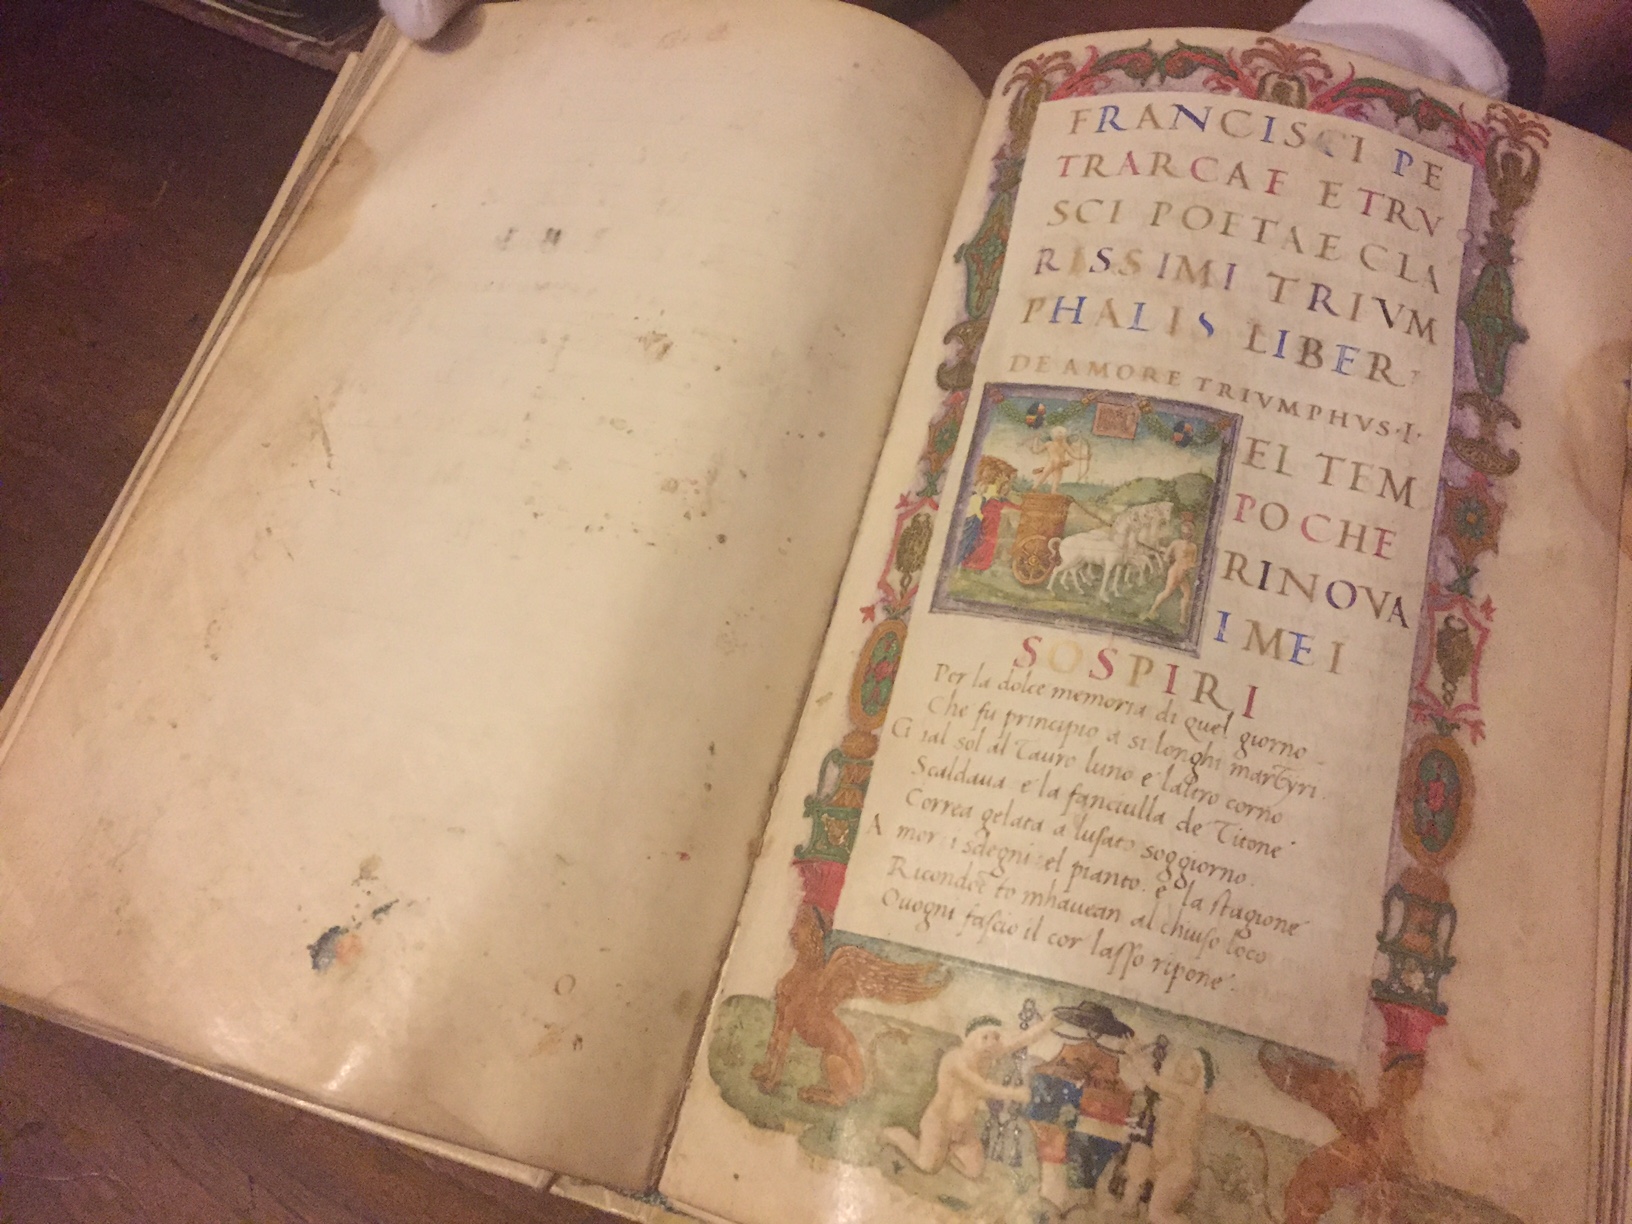 FRANCISCI PE
TRARCAE ETRV
SCI POETAE CLA
RISSIMI TRIVM
PHALIS LIBER
DE AMORE TRIVMPHVS·I·
EL TEM
PO CHE
RINOVA
I MEI
SOSPIRI
Per la dolce memoria di quel giorno
Che fu principio a si longhi martyri.
Gi ial sol al Tauro luno e laltro corno
Scaldaua e la fanciulla de Titone
Correa gelata a lusato soggiorno.
Amor i sdegni el pianto. e la stagione
Ricondoc to mhauean al chiuso loco
Ouogni fascio il cor lasso ripone.